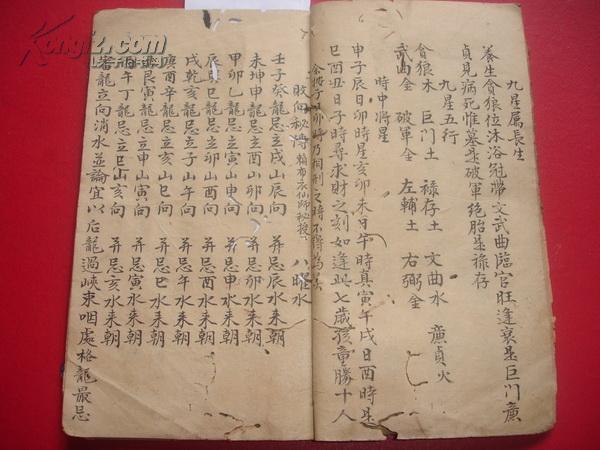 九星属長生
養生貪狼位沐浴冠帶文武曲臨官旺逢衰是巨门廉
貞見病死惟墓是破軍绝胎是禄存
九星五行
貪狼木 巨门土 禄存土 文曲水 廉貞火
武曲金 破軍金 左輔土 右弼金
時中將星
甲子辰日卯時星亥卯未日午時真寅午戌日酉時是
巳酉丑日子時尋求財之刻如逢此七歲孩童勝十人
余按子日卯時乃相刑之時不得為
砂向秘傳 賴布衣仙師秘授 八曜水
壬子癸龍忌立戌山辰向 并忌辰水来朝
未坤申龍忌立酉山卯向 并忌卯水来朝
甲卯乙龍忌立寅山申向 并忌申水来朝
辰巽巳龍忌立卯山酉向 并忌酉水来朝
戌乾亥龍忌立子山午向 并忌午水来朝
庚酉辛龍忌立亥山巳向 并忌巳水来朝
艮寅龍忌立申山寅向 并忌寅水来朝
午丁龍忌立巳山亥向 并忌亥水来朝
龍立向消水並論宜以后龍過峽束咽處格龍最忌
Kongfz.com